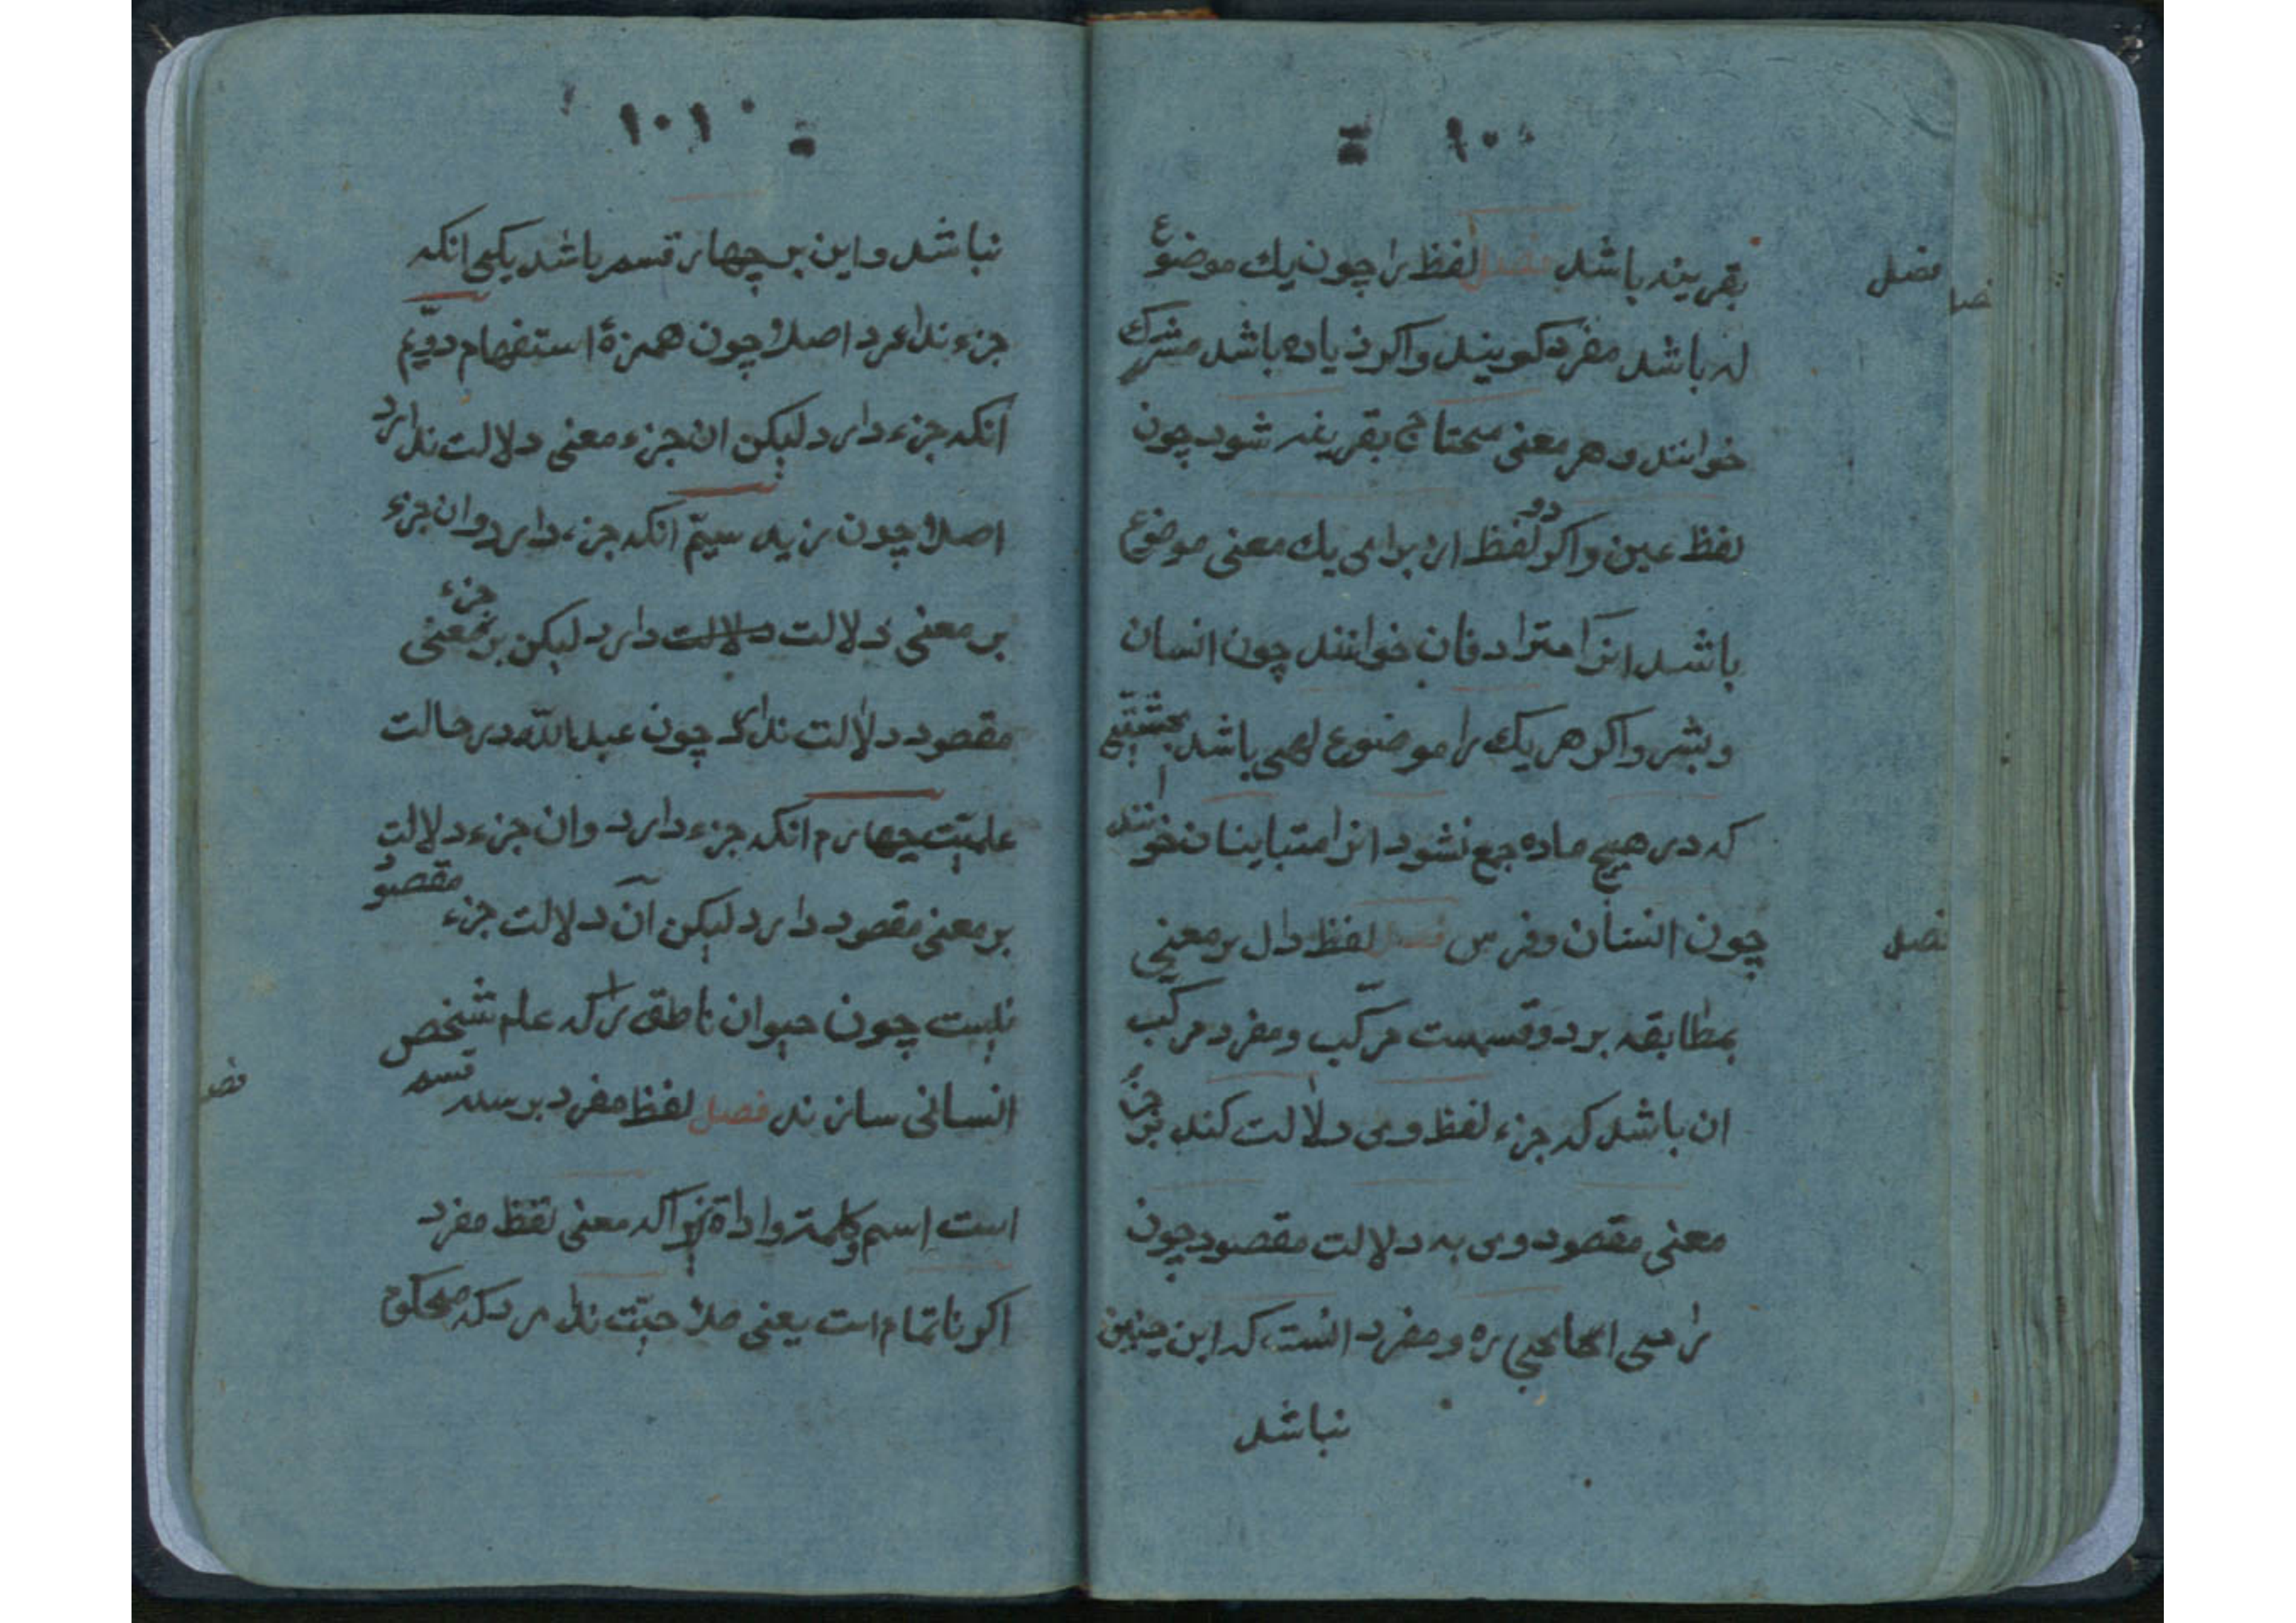 ۱۰۰
بقرینه باشد فصل لفظ را چون یك موضوع
له باشد مفرد کویند واکر زیاده باشد مشترك
خوانند و هر معنی محتاج بقرینه شود چون
لفظ عین واکر دو لفظ از برای یك معنی موضوع
باشد انرا مترادفان خوانند چون انسان
و بشر واکر هر یك را موضوع لهی باشد بحیثیتی
که در هیچ ماده جمع نشود انرا متباینان خوانند
چون انسان وفرس فصل لفظ دال بر معنی
بمطابقه بر دو قسمست مرکّب و مفرد مرکب
ان باشد که جزء لفظ وی دلالت کند بر جزء
معنی مقصود وی به دلالت مقصود چون
رامی الحجاره و مفرد انست که این چنین
نباشد
فصل
فصل
۱۰۱
نباشد و این بر چهار قسم باشد یکی انکه
جزء ندارد اصلا چون همزهٔ استفهام دویّم
انکه جزء دارد لیکن ان جزء معنی دلالت ندارد
اصلا چون زید سیّم انکه جزء دارد وان جزء
بر معنی دلالت دلالت دارد لیکن بر جزء معنی
مقصود دلالت ندارد چون عبدالله در حالت
علمیّت چهارم انکه جزء دارد وان جزء دلالت
بر معنی مقصود دارد لیکن آن دلالت جزء مقصود
نیست چون حیوان ناطق را که علم شخص
انسانی سازند فصل لفظ مفرد بر سه قسم
است اسم وکلمة واداة زیراکه معنی لفظ مفرد
اکر ناتمام است یعنی صلاحیّت ندارد که محکوم